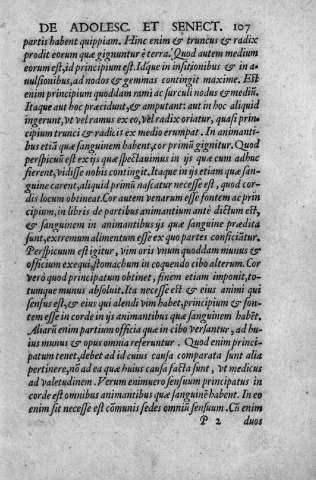 DE ADOLESC. ET SENECT. 107
partis habent quippiam. Hinc enim & truncus & radix
prodit eorum quæ gignuntur è terra. Quod autem medium
eorum est, id principium est. Idque in insitionibus & in a-
uulsionibus, ad nodos & gemmas contingit maxime. Est
enim principium quoddam rami ac surculi nodus & mediũ.
Itaque aut hoc præcidunt, & amputant: aut in hoc aliquid
ingerunt, vt vel ramus ex eo, vel radix oriatur, quasi prin-
cipium trunci & radicis ex medio erumpat. In animanti-
bus etiã quæ sanguinem habent, cor primũ gignitur. Quod
perspicuũ est ex ijs quæ spectauimus in ijs quæ cum adhuc
fierent, vidisse nobis contingit. Itaque in ijs etiam quæ san-
guine carent, aliquid primũ nascatur necesse est, quod cor-
dis locum obtineat. Cor autem venarum esse fontem ac prin
cipium, in libris de partibus animantium antè dictum est,
& sanguinem in animantibus ijs quæ sanguine prædita
sunt, extremum alimentum esse ex quo partes conficiãtur.
Perspicuum est igitur, vim oris vnum quoddam munus &
officium exequi, stomachum in coquendo cibo alterum. Cor
verò quod principatum obtinet, finem etiam imponit, to-
tumque munus absoluit. Ita necesse est & eius animi qui
sensus est, & eius qui alendi vim habet, principium & fon-
tem esse in corde in ijs animantibus quæ sanguinem habẽt.
Aliarũ enim partium officia quæ in cibo versantur, ad hu-
ius munus & opus omnia referuntur. Quod enim princi-
patum tenet, debet ad id cuius causa comparata sunt alia
pertinere, nõ ad ea quæ huius causa facta sunt, vt medicus
ad valetudinem. Verum enimuero sensuum principatus in
corde est omnibus animantibus quæ sanguinẽ habent. In eo
enim sit necesse est cõmunis sedes omniũ sensuum. Cũ enim
P 2 duos